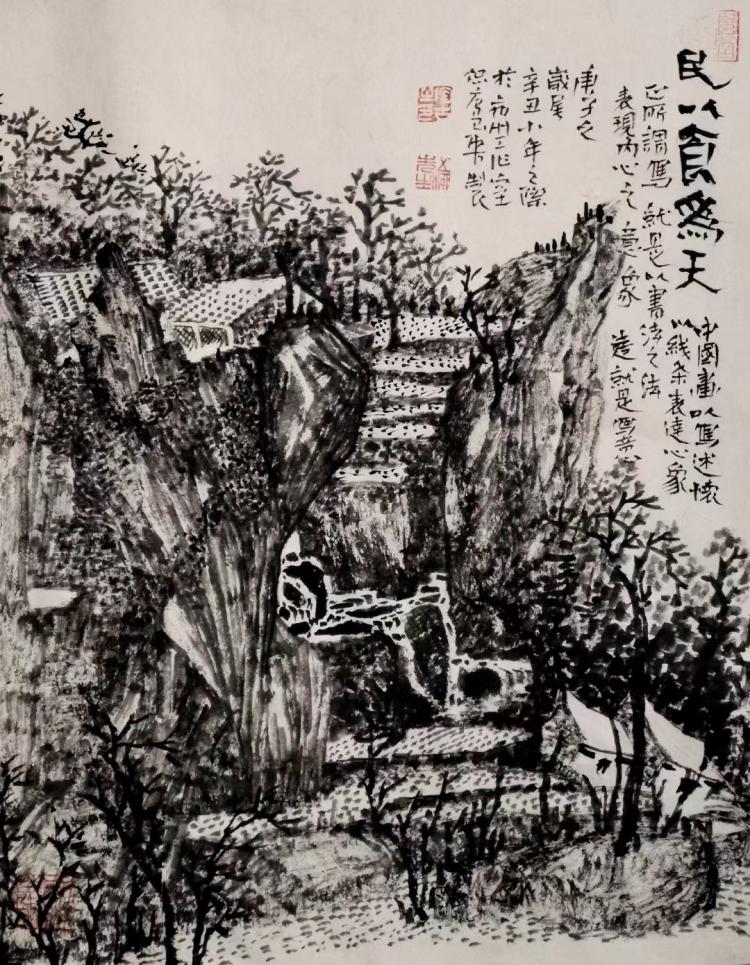 民以食為天
中國畫以寫述懷
以綫条表達心象
正所謂寫 就是以書法之法
表現内心之意象 這就是寫意
庚子之
歲尾
辛丑小年之際
於杭州工作室
製